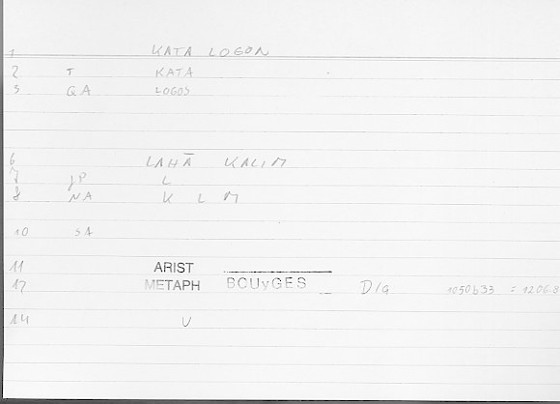 1 KATA LOGON
2 T KATA
5 QA LOGOS
6 LAHĀ KALIM
7 JP L
8 NA K L M
10 SA
11 ARIST
12 METAPH BOUyGES D/G 1050b33 = 1206.8
14 V